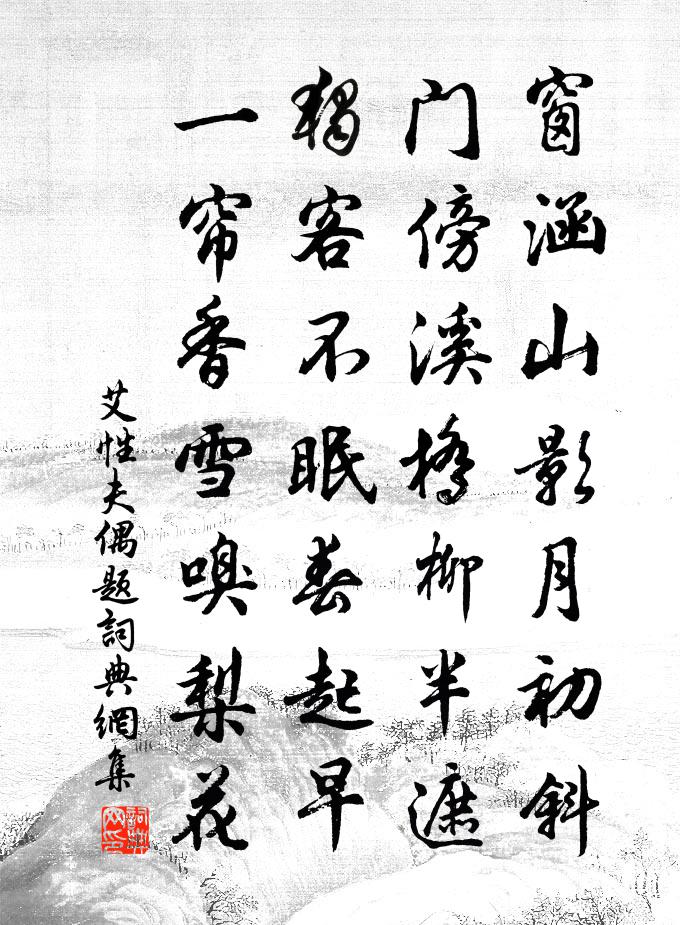 窗涵山影月初斜
門傍溪橋柳半遮
獨客不眠春起早
一帘香雪嗅梨花
艾性夫偶题詞典網集
詞典网印